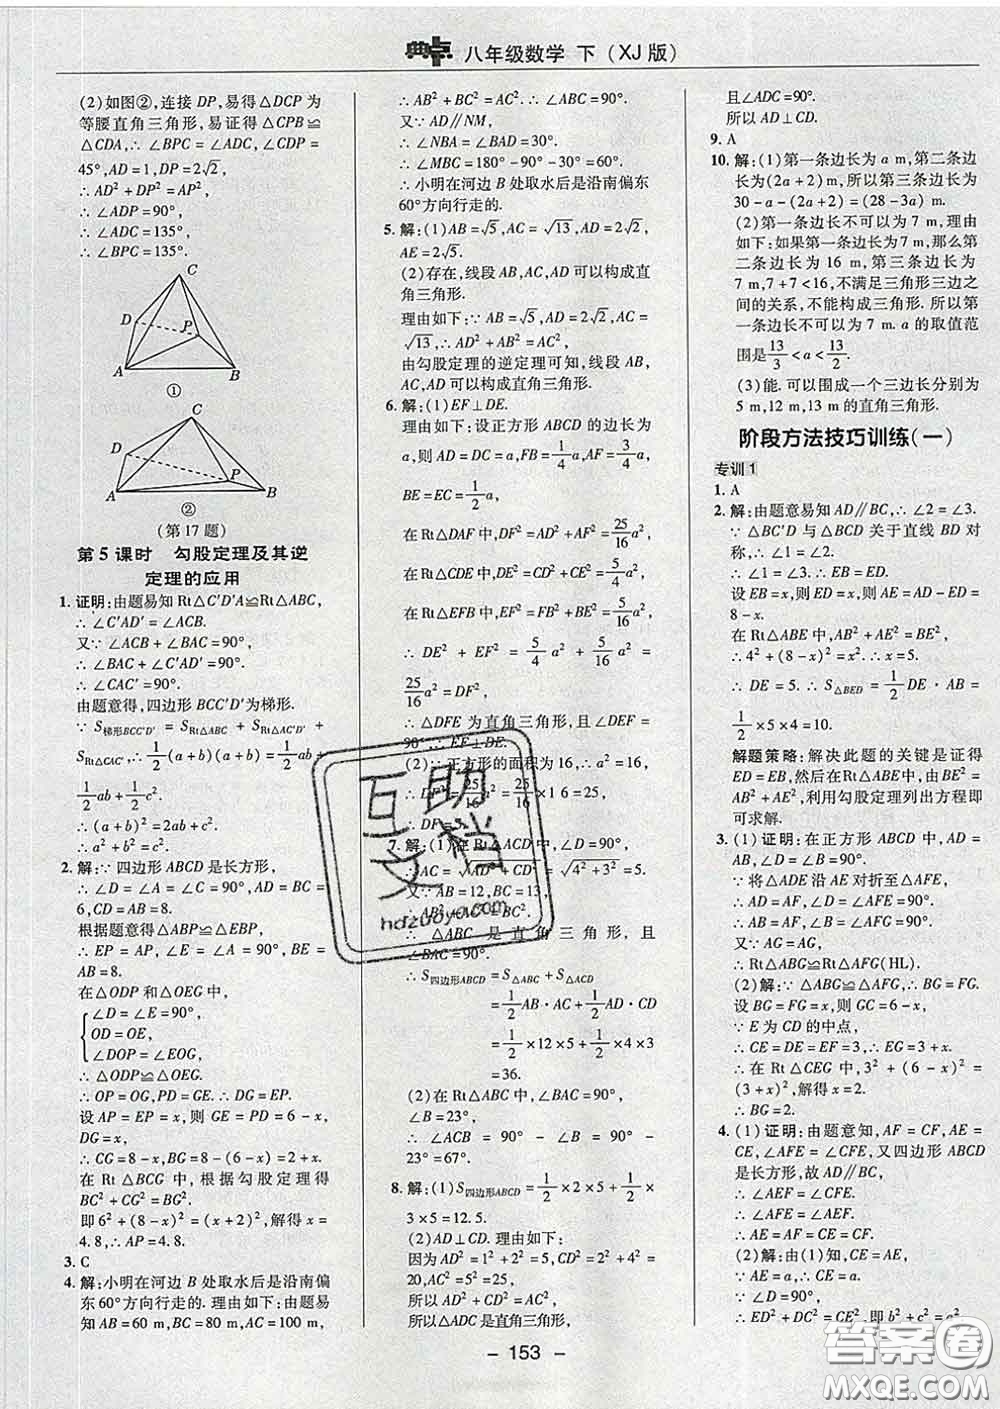 典点 八年级数学 下（XJ版）
(2)如图②,连接 DP,易得△DCP 为
等腰直角三角形,易证得△CPB≌
△CDA,∴∠BPC=∠ADC,∠CDP=
45°,AD=1,DP=2√2,
∴AD²+DP²=AP²,
∴∠ADP=90°,
∴∠ADC=135°,
∴∠BPC=135°.
C
D
P
A
B
①
C
D
P
A
B
②
(第17题)
第5课时 勾股定理及其逆
定理的应用
1. 证明:由题易知 Rt△C'D'A≌Rt△ABC,
∴∠C'AD'=∠ACB.
又∵∠ACB+∠BAC=90°,
∴∠BAC+∠C'AD'=90°.
∴∠CAC'=90°.
由题意得,四边形 BCC'D'为梯形.
∵S梯形BCC'D'=SRt△ABC+SRt△AC'D'+
SRt△CAC',∴1/2(a+b)(a+b)=1/2ab+
1/2ab+1/2c².
∴(a+b)²=2ab+c².
∴a²+b²=c².
2. 解:∵四边形 ABCD 是长方形,
∴∠D=∠A=∠C=90°,AD=BC=
6,CD=AB=8.
根据题意得△ABP≌△EBP,
∴EP=AP,∠E=∠A=90°,BE=
AB=8.
在△ODP 和△OEG 中,
∠D=∠E=90°,
OD=OE,
∠DOP=∠EOG,
∴△ODP≌△OEG.
∴OP=OG,PD=GE.∴DG=EP.
设 AP=EP=x,则 GE=PD=6-x,
DG=x,
∴CG=8-x,BG=8-(6-x)=2+x.
在 Rt△BCG 中,根据勾股定理得
BC²+CG²=BG².
即6²+(8-x)²=(x+2)²,解得 x=
4.8,∴AP=4.8.
3. C
4. 解:小明在河边 B 处取水后是沿南偏
东60°方向行走的.理由如下:由题易
知 AB=60 m,BC=80 m,AC=100 m,
∴AB²+BC²=AC².∴∠ABC=90°.
又∵AD∥NM,
∴∠NBA=∠BAD=30°.
∴∠MBC=180°-90°-30°=60°.
∴小明在河边 B 处取水后是沿南偏东
60°方向行走的.
5. 解:(1)AB=√5,AC=√13,AD=2√2,
AE=2√5.
(2)存在,线段 AB,AC,AD 可以构成直
角三角形.
理由如下:∵AB=√5,AD=2√2,AC=
√13,∴AD²+AB²=AC².
由勾股定理的逆定理可知,线段 AB,
AC,AD 可以构成直角三角形.
6. 解:(1)EF⊥DE.
理由如下:设正方形 ABCD 的边长为
a,则 AD=DC=a,FB=1/4a,AF=3/4a,
BE=EC=1/2a,
在 Rt△DAF 中,DF²=AD²+AF²=25/16a²,
在 Rt△CDE 中,DE²=CD²+CE²=5/4a²,
在 Rt△EFB 中,EF²=FB²+BE²=5/16a²,
∴DE²+EF²=5/4a²+5/16a²=
25/16a²=DF²,
∴△DFE 为直角三角形,且∠DEF=
90°.∴EF⊥DE.
(2)∵正方形的面积为16,∴a²=16,
∴DF²=25/16a²=25/16×16=25,
∴DF=5.
7. 解:(1)在 Rt△ACD 中,∠D=90°,
∴AC=√AD²+CD²=√4²+3²=5.
又∵AB=12,BC=13,
∴AB²+AC²=BC².
∴△ABC 是直角三角形,且
∠BAC=90°.
∴S四边形ABCD=S△ABC+S△ACD
=1/2AB·AC+1/2AD·CD
=1/2×12×5+1/2×4×3
=36.
(2)在 Rt△ABC 中,∠BAC=90°,
∠B=23°,
∴∠ACB=90°-∠B=90°-
23°=67°.
8. 解:(1)S四边形ABCD=1/2×2×5+1/2×
3×5=12.5.
(2)AD⊥CD.理由如下:
因为AD²=1²+2²=5,CD²=2²+4²=
20,AC²=25,
所以 AD²+CD²=AC².
所以△ADC 是直角三角形,
且∠ADC=90°.
所以 AD⊥CD.
9. A
10. 解:(1)第一条边长为 a m,第二条边
长为(2a+2) m,所以第三条边长为
30-a-(2a+2)=(28-3a) m.
(2)第一条边长不可以为7 m,理由
如下:如果第一条边长为7 m,那么第
二条边长为16 m,第三条边长为
7 m,7+7<16,不满足三角形三边之
间的关系,不能构成三角形.所以第
一条边长不可以为7 m.a 的取值范
围是13/3<a<13/2.
(3)能.可以围成一个三边长分别为
5 m,12 m,13 m 的直角三角形.
阶段方法技巧训练(一)
专训1
1. A
2. 解:由题意易知 AD∥BC,∴∠2=∠3.
∵△BC'D 与△BCD 关于直线 BD 对
称,∴∠1=∠2.
∴∠1=∠3.∴EB=ED.
设 EB=x,则 ED=x,AE=AD-ED=
8-x.
在 Rt△ABE 中,AB²+AE²=BE²,
∴4²+(8-x)²=x².∴x=5.
∴DE=5.∴S△BED=1/2DE·AB=
1/2×5×4=10.
解题策略:解决此题的关键是证得
ED=EB,然后在Rt△ABE中,由BE²=
AB²+AE²,利用勾股定理列出方程即
可求解.
3. (1)证明:在正方形 ABCD 中,AD=
AB,∠D=∠B=90°.
∵将△ADE 沿 AE 对折至△AFE,
∴AD=AF,∠D=∠AFE=90°.
∴AB=AF,∠B=∠AFG=90°.
又∵AG=AG,
∴Rt△ABG≌Rt△AFG(HL).
(2)解:∵△ABG≌△AFG,∴BG=FG.
设 BG=FG=x,则 GC=6-x,
∵E 为 CD 的中点,
∴CE=DE=EF=3,∴EG=3+x.
∴在 Rt△CEG 中,3²+(6-x)²=
(3+x)²,解得 x=2.
∴BG=2.
4. (1)证明:由题意知,AF=CF,AE=
CE,∠AFE=∠CFE,又四边形 ABCD
是长方形,故 AD∥BC,
∴∠AEF=∠CFE.
∴∠AFE=∠AEF.
∴AE=AF=CE=CF.
(2)解:由(1)知,CE=AE,
∵AE=a,∴CE=a.
∵∠D=90°,
∴ED²+DC²=CE²,即b²+c²=a².
互助
文档
hdzuoye.com
答案圈
MXQE.COM
- 153 -